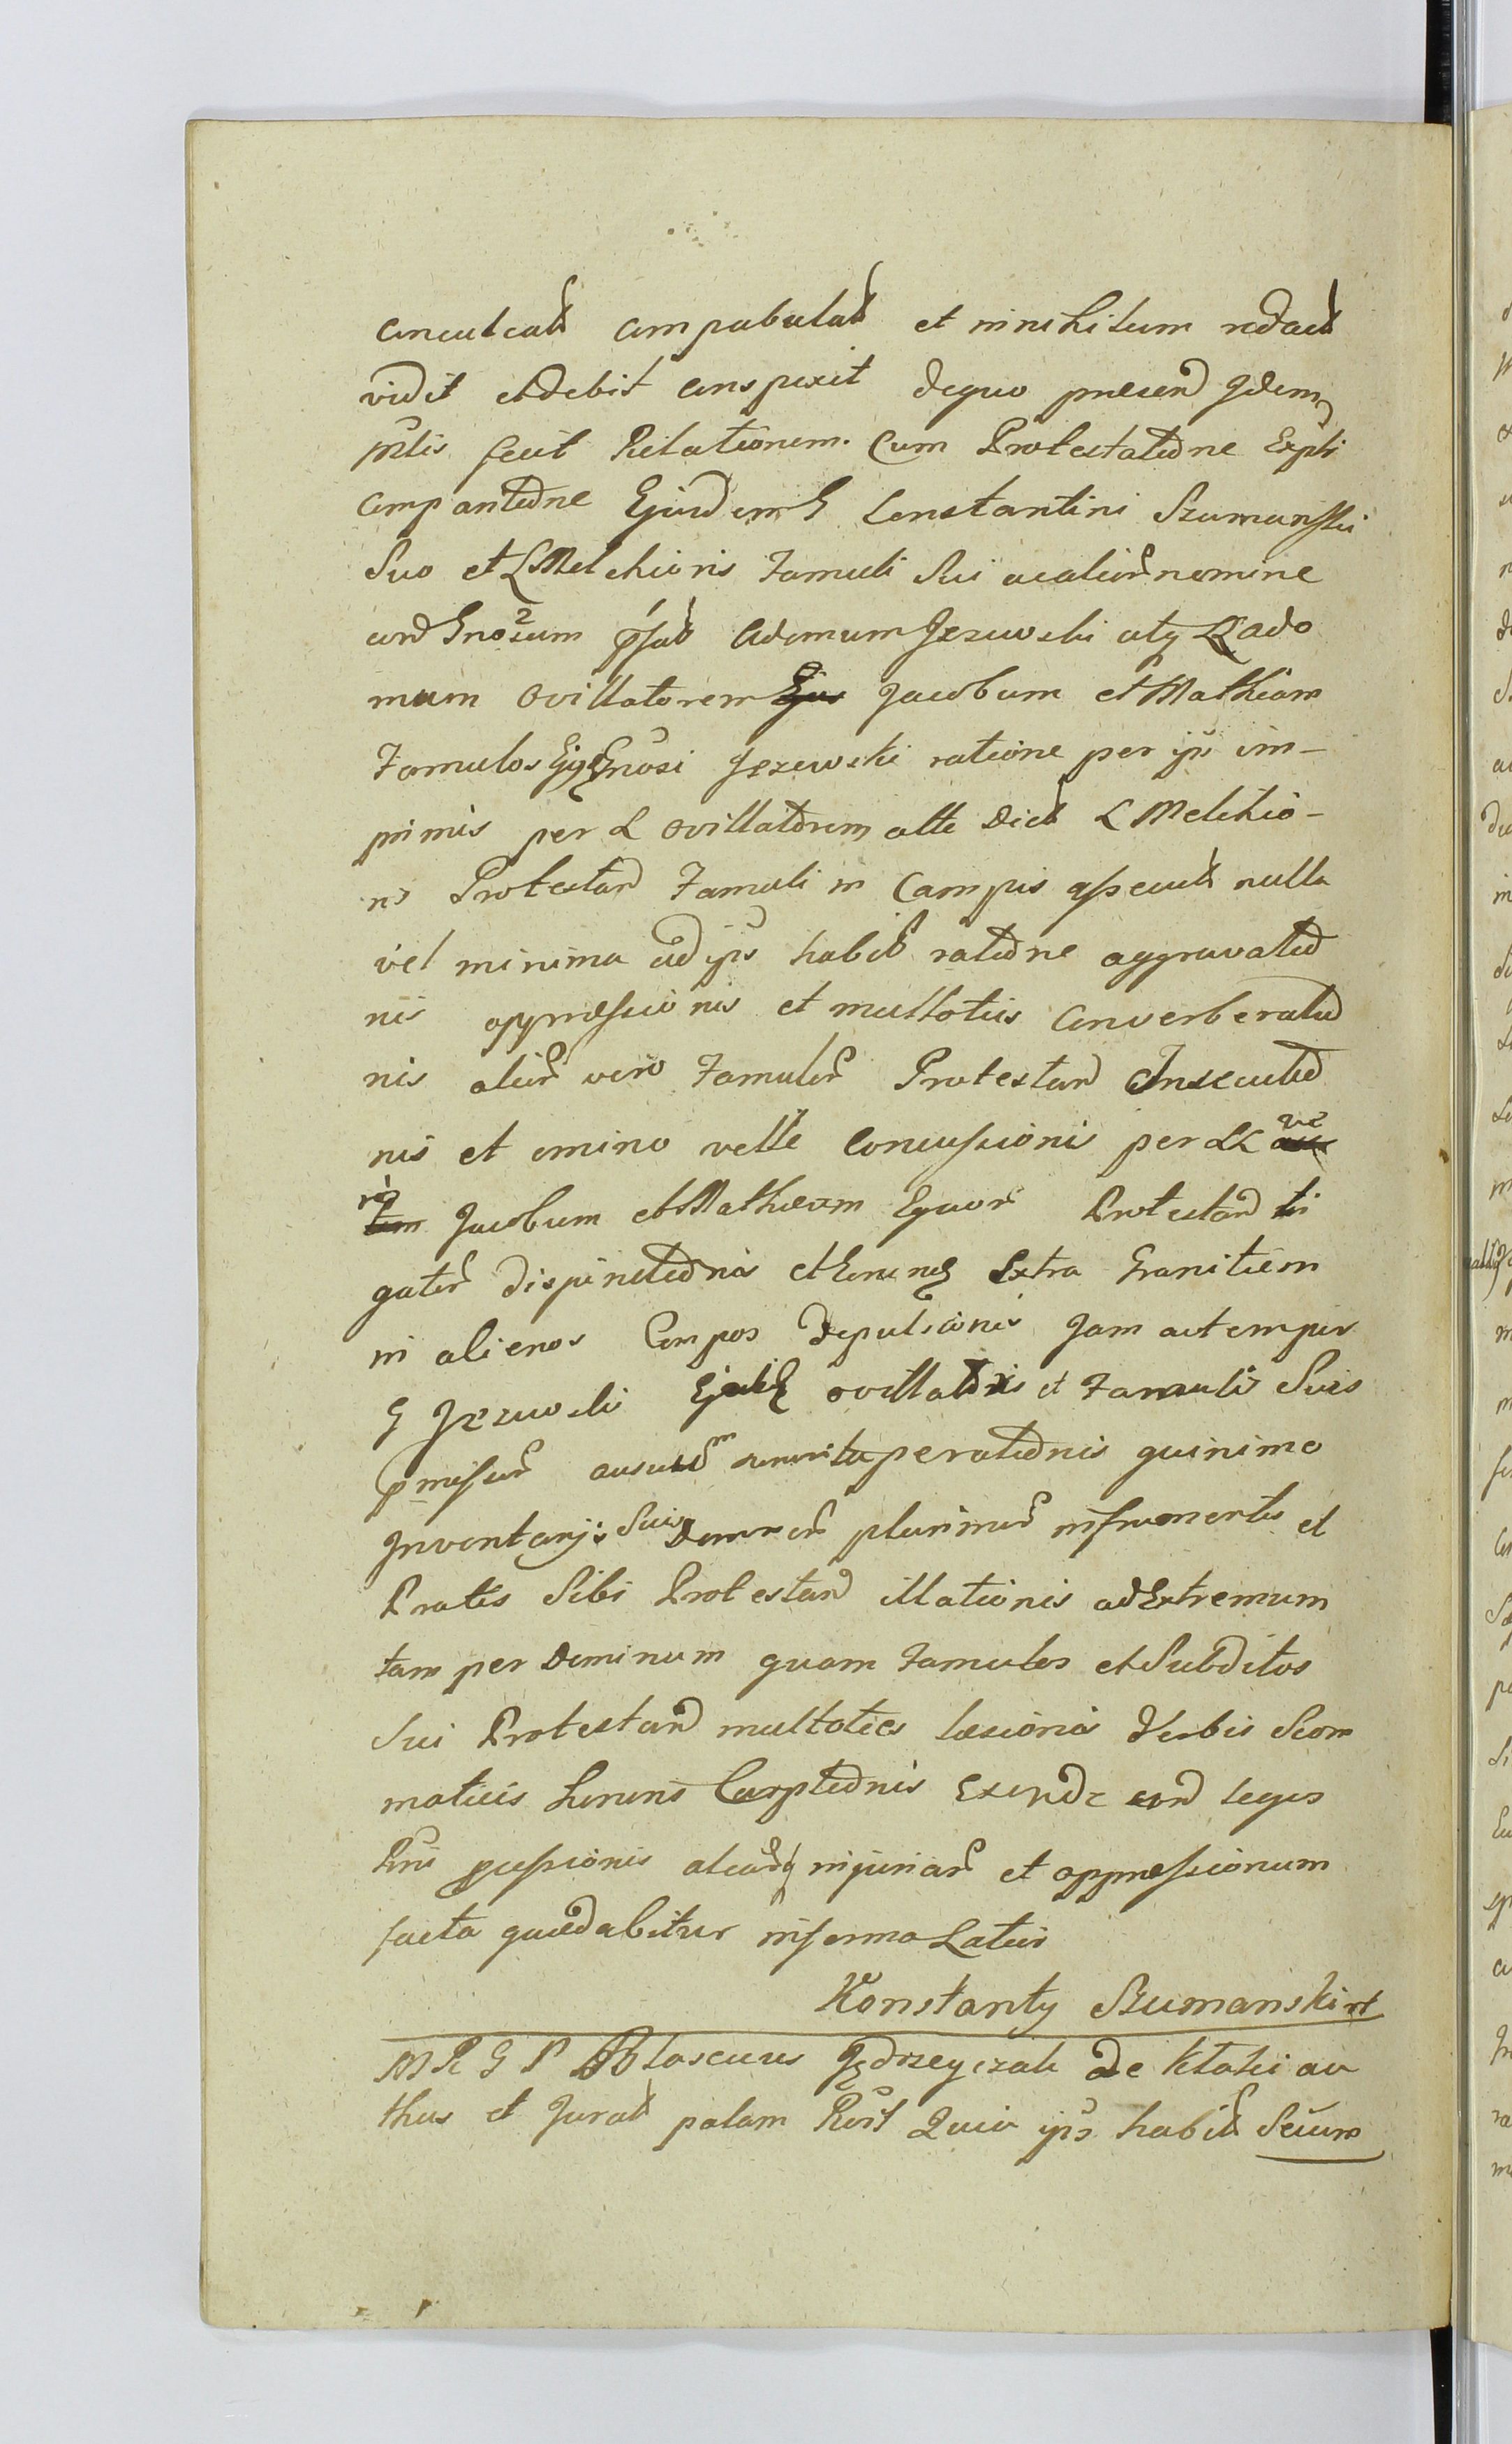 conculcat compabulat et in nihilum redact
vidit et debit conspexit de quo praesen Idem
mlis fecit Relationem. Cum Protestatione Expti
comparitione Ejusdem G Constantini Szumanski
Suo et L Melchioris Famuli Sui ac alior nomine
con Gnosum psat Adamum Jezewski atq L Ado
mum ovillatorem Jacobum et Mathiam
Famulos Ejq Gnosi Jezewski ratione per ips im-
primis per L ovillatorem alte Dict L Melchio-
ris Protestan Famuli in Campis assecut nulla
vel minima ad ips habit ratione aggravatio
nis oppressionis et multoties Converberatio
nis alior vero Famulor Protestan Insecutio
nis et omino velle Concussionis per LL ve
ro Jacobum et Mathiam Equor Protestan li
gator dispinctionis et Eorunq Extra Granitiem
in alienos Campos Depulsionis Jam autem per
G Jezewski ovillatoris et Famulis Suis
pmissor ausuum quinimo
Inventarijs Suis Damnor plurimor in frumentis et
Pratis Sibi Protestan illationis ad Extremum
tam per Dominum quam Famulos et Subditos
Sui Protestan multoties laesionis Verbis Scom
maticis honoris Carptionis Exinde con leges
Pni processionis aliarq injuriar et oppressionum
facta quae dabitur in forma Latiori
Konstanty Szumanski mt
M R G P Blascus Jędrzeyczak de Kloki au
thus et Jurat palam Recit Quia ips habit Secum